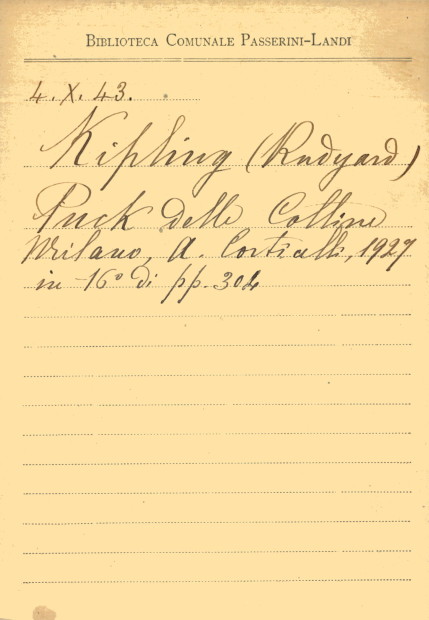 BIBLIOTECA COMUNALE PASSERINI-LANDI
4. X. 43.
Kipling (Rudyard)
Puck delle Colline
Milano, A. Corticelli, 1927
in 16° di pp. 304